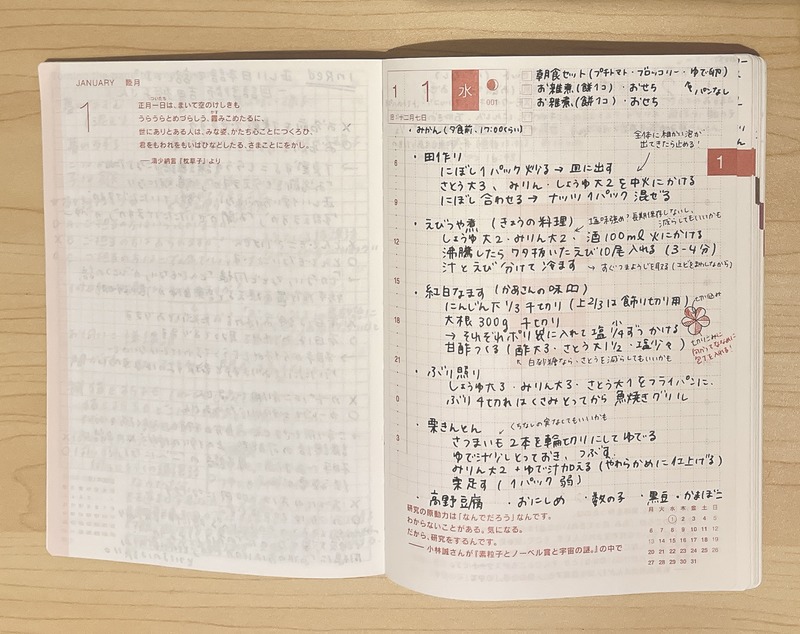 JANUARY 睦月
1
正月一日は、まいて空のけしきも
うらうらとめづらしう、霞みこめたるに、
世にありとある人は、みな姿、かたち心ことにつくろひ、
君をもわれをもいはひなどしたる、さまことにをかし。
——清少納言『枕草子』より
1 1 水
001
旧/十二月七日
朝食セット(プチトマト・ブロッコリー・ゆで卵)
お雑煮(餅1コ)・おせち
パンなし
お雑煮(餅1コ)・おせち
・みかん(夕食前、17:00くらい)
全体に細かい泡が
出てきたら止める!
1
・田作り
にぼし1パック炒る→皿に出す
さとう大3、みりん・しょうゆ大2を中火にかける
にぼし合わせる→ナッツ1パック混ぜる
・えびつや煮(きょうの料理)
塩味強め?長期保存しないし、
減らしてもいいかも
しょうゆ大2・みりん大2、酒100ml火にかける
沸騰したらワタ抜いたえび10尾入れる(3-4分)
汁とえび分けて冷ます
→すぐつまようじを取る(エビを回しながら)
・紅白なます(かあさんの味)
にんじん下1/3千切り(上2/3は飾り切り用)
切り込み
大根300g 千切り
→それぞれポリ袋に入れて塩小1/4ずつかける
甘酢つくる(酢大3・さとう大1 1/2・塩少々)
白砂糖なら、さとうを減らしてもいいかも
切りこみに
向かってななめに
包丁を入れる!
・ぶり照り
しょうゆ大3・みりん大3・さとう大1をフライパンに、
ぶり4切れはくさみとってから魚焼きグリル
・栗きんとん
くちなしの実なくてもいいかも
さつまいも2本を輪切りにしてゆでる
ゆで汁少しとっておき、つぶす
みりん大2+ゆで汁加える(やわらかめに仕上げる)
栗足す(1パック弱)
・高野豆腐 ・おにしめ ・数の子 ・黒豆・かまぼこ
6
9
12
15
18
21
0
3
研究の原動力は「なんでだろう」なんです。
わからないことがある。気になる。
だから、研究をするんです。
——小林誠さんが『素粒子とノーベル賞と宇宙の謎。』の中で
月 火 水 木 金 土 日
1 2 3 4 5
6 7 8 9 10 11 12
13 14 15 16 17 18 19
20 21 22 23 24 25 26
27 28 29 30 31